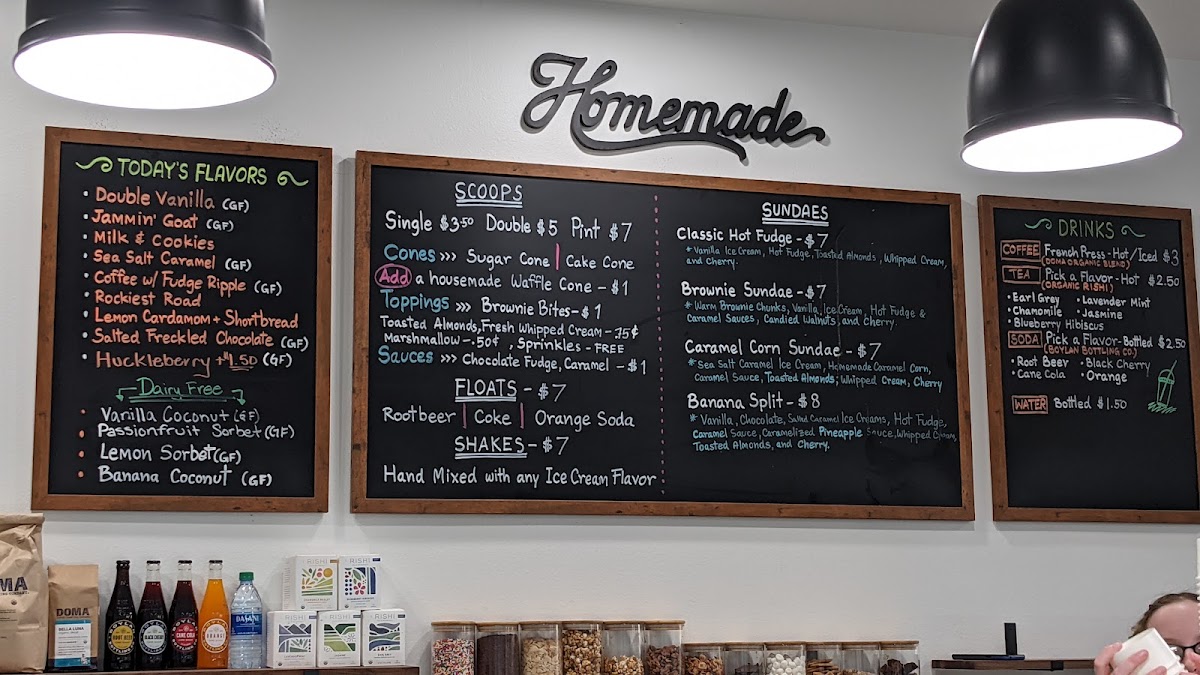 Homemade
TODAY'S FLAVORS
• Double Vanilla (GF)
• Jammin' Goat (GF)
• Milk & Cookies
• Sea Salt Caramel (GF)
• Coffee w/ Fudge Ripple (GF)
• Rockiest Road
• Lemon Cardamom + Shortbread
• Salted Freckled Chocolate (GF)
• Huckleberry +$1.50 (GF)
Dairy Free
• Vanilla Coconut (GF)
• Passionfruit Sorbet (GF)
• Lemon Sorbet (GF)
• Banana Coconut (GF)
SCOOPS
Single $3.50 Double $5 Pint $7
Cones >>> Sugar Cone | Cake Cone
Add a housemade Waffle Cone - $1
Toppings >>> Brownie Bites - $1
Toasted Almonds, Fresh Whipped Cream - .75¢
Marshmallow - .50¢, Sprinkles - FREE
Sauces >>> Chocolate Fudge, Caramel - $1
FLOATS - $7
Rootbeer | Coke | Orange Soda
SHAKES - $7
Hand Mixed with any Ice Cream Flavor
SUNDAES
Classic Hot Fudge - $7
* Vanilla Ice Cream, Hot Fudge, Toasted Almonds, Whipped Cream,
and Cherry.
Brownie Sundae - $7
* Warm Brownie Chunks, Vanilla Ice Cream, Hot Fudge &
Caramel Sauces, Candied Walnuts, and Cherry.
Caramel Corn Sundae - $7
* Sea Salt Caramel Ice Cream, Homemade Caramel Corn,
Caramel Sauce, Toasted Almonds, Whipped Cream, Cherry
Banana Split - $8
* Vanilla, Chocolate, Salted Caramel Ice Creams, Hot Fudge,
Caramel Sauce, Caramelized Pineapple Sauce, Whipped Cream,
Toasted Almonds, and Cherry.
DRINKS
COFFEE French Press - Hot/Iced $3
(DOMA ORGANIC BLEND)
TEA Pick a Flavor - Hot $2.50
(ORGANIC RISHI)
• Earl Grey • Lavender Mint
• Chamomile • Jasmine
• Blueberry Hibiscus
SODA Pick a Flavor - Bottled $2.50
(BOYLAN BOTTLING CO.)
• Root Beer • Black Cherry
• Cane Cola • Orange
WATER Bottled $1.50
MA
DOMA
BELLA LUNA
ROOT BEER
BLACK CHERRY
CANE COLA
ORANGE
DASANI
RISHI
RISHI
RISHI
RISHI
RISHI